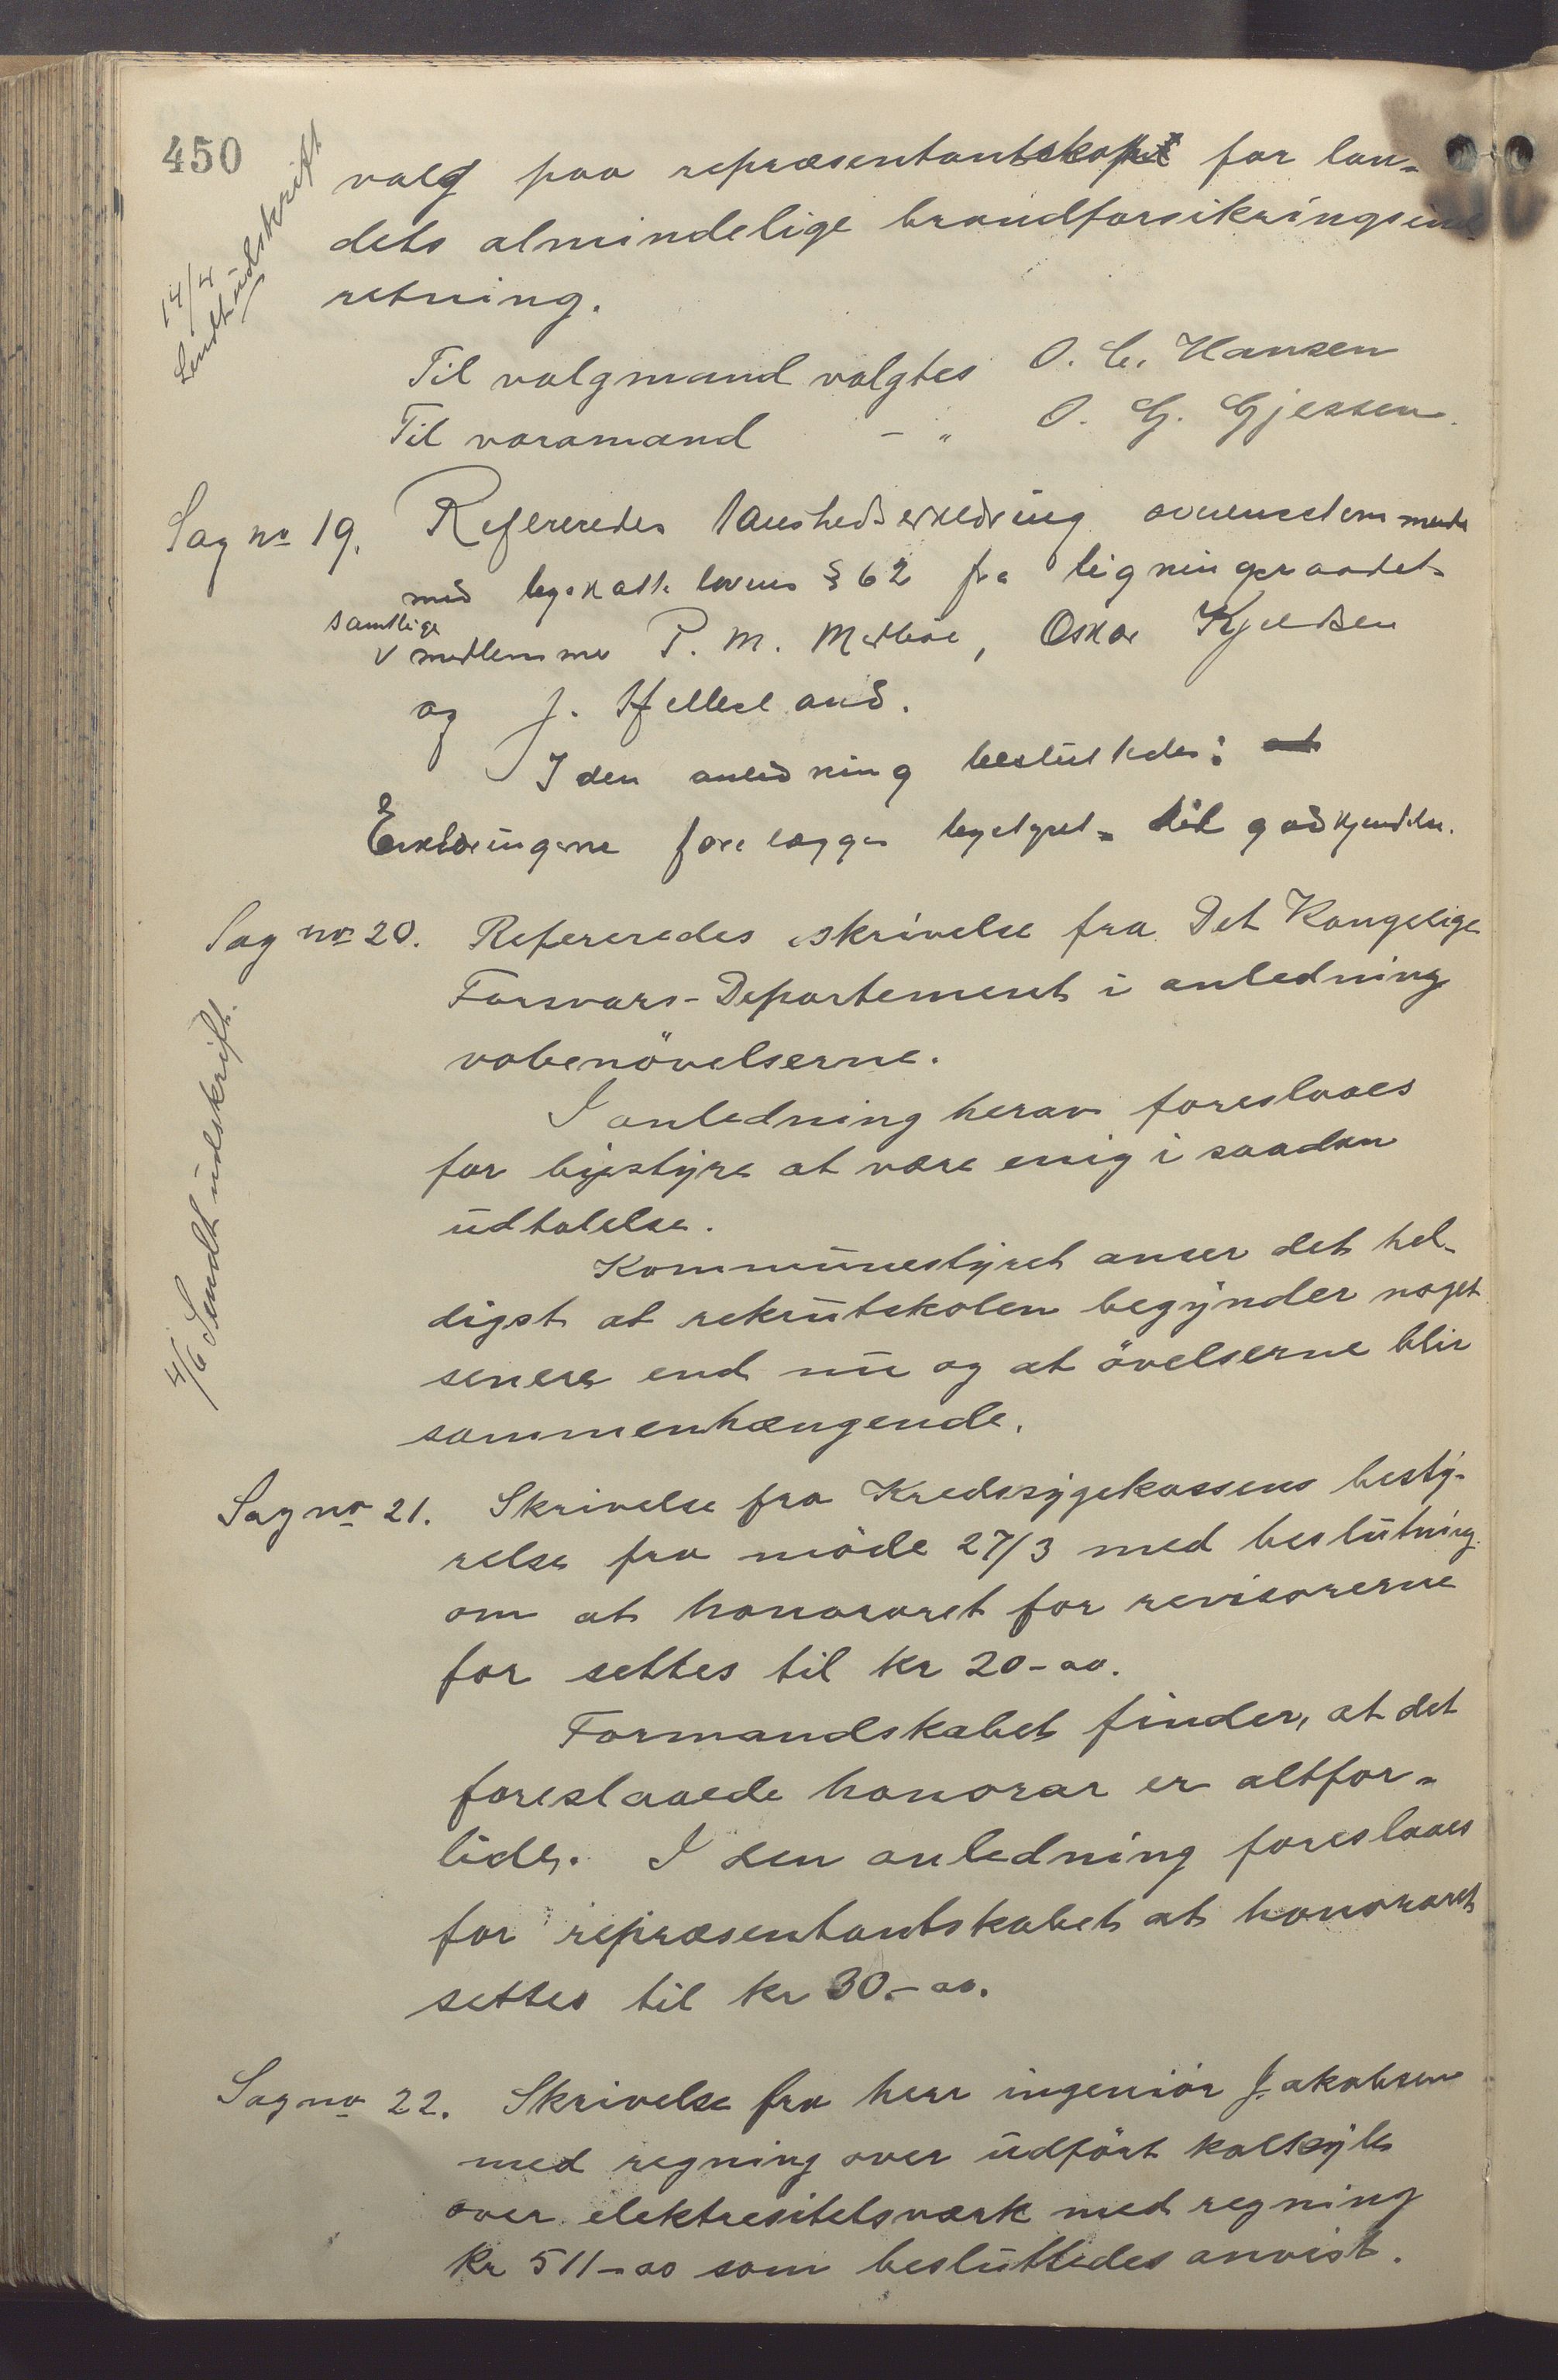 450
14/4
Sendt üdskrift
valg paa repræsentantskapet for lan-
dets almindelige brandforsikringsind
retning.
Til valgmand valgtes O. C. Hansen
Til varamand - " O. G. Gjessen.
Sag no 19. Refereredes taushedserklæring overensstemmende
med byskattelovens § 62 fra ligningsraadets
samtlige
v medlemmer P. M. Medbøe, Oskar Kjeldsen
og J. Helleland.
I den anledning besluttedes: at
Erklæringerne forelægges bystyret til godkjendelse.
Sag no 20. Refereredes skrivelse fra Det Kongelige
Forsvars-Departement i anledning
vabenövelserne.
I anledning herav foreslaaes
for bystyre at være enig i saadan
üdtalelse.
4/6 Sendt üdskrift.
Kommünestyret anser det hel-
digst at rekrütskolen begynder noget
senere end nü og at övelserne blir
sammenhængende.
Sag no 21. Skrivelse fra Kredssygekassens besty-
relse fra möde 27/3 med beslütning
om at honoraret for revisorerne
for settes til kr 20-00.
Formandskabet finder, at det
foreslaaede honorar er altfor-
lide. I den anledning foreslaaes
for repræsentantskabet at honoraret
settes til kr 30-00.
Sag no 22. Skrivelse fra herr ingeniör Jakobsen
med regning over üdfört kalkyle
over elektresitetsværk med regning
kr 511-00 som beslüttedes anvist.